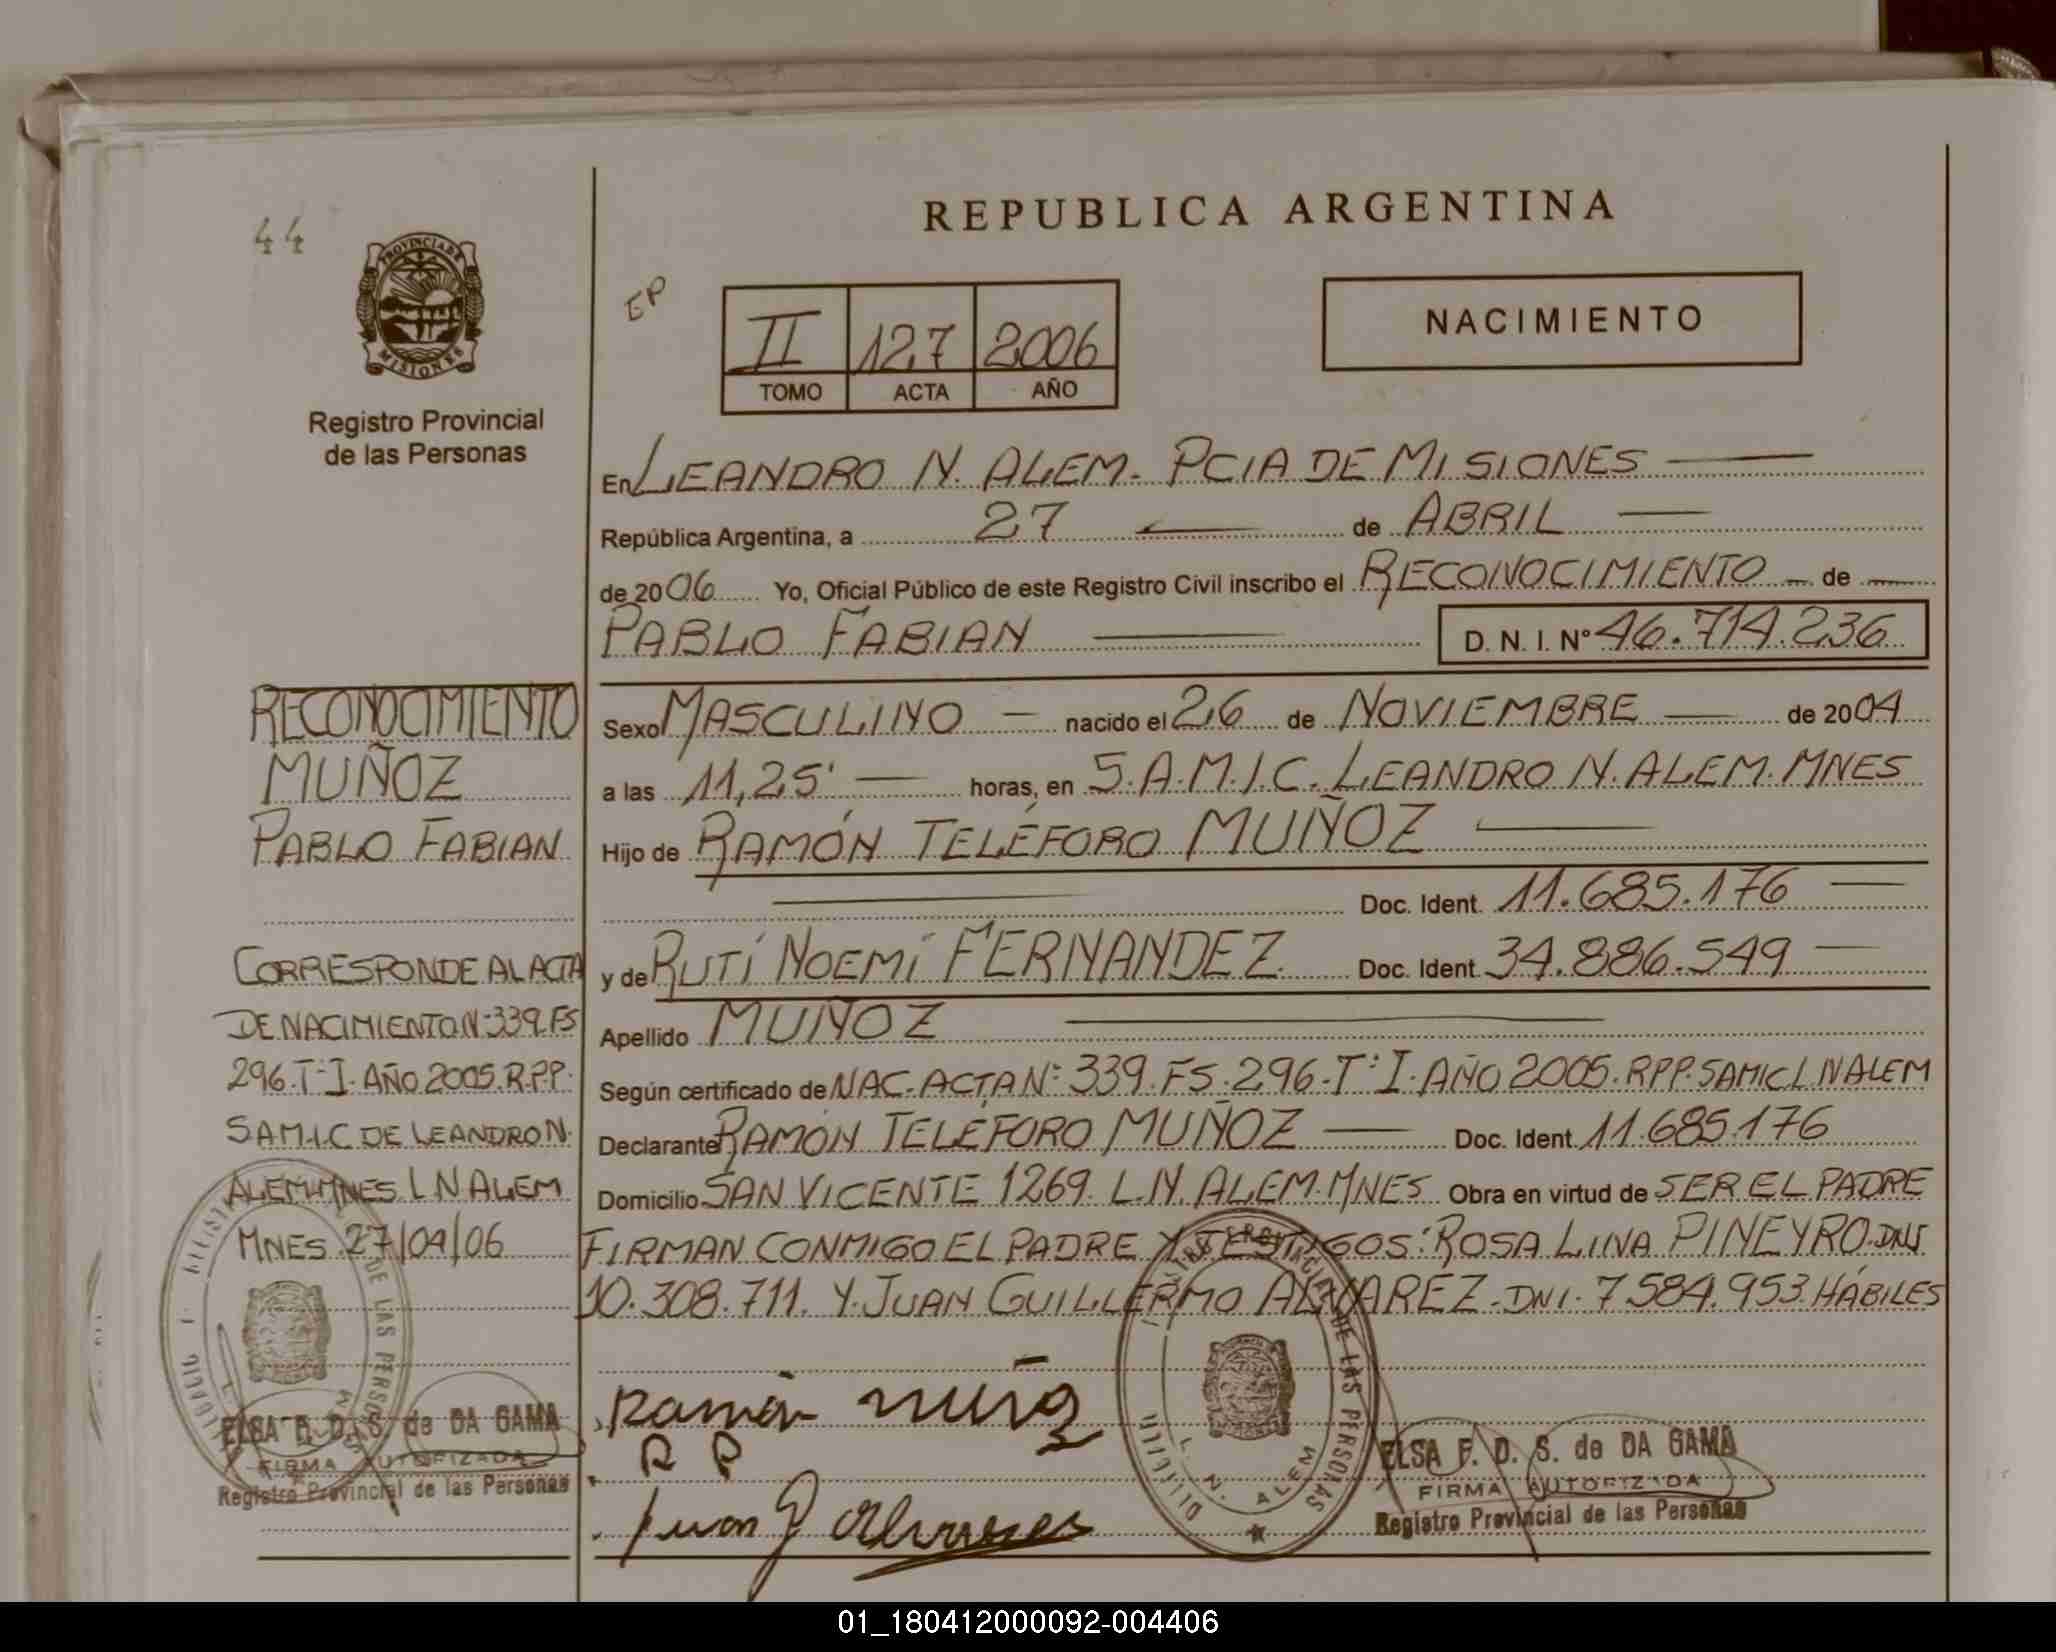 44
PROVINCIA DE
MISIONES
Registro Provincial
de las Personas
RECONOCIMIENTO
MUÑOZ
PABLO FABIAN
CORRESPONDE AL ACTA
DE NACIMIENTO N: 339. FS
296. Tº I. AÑO 2005. R.P.P.
S.A.M.I.C DE LEANDRO N.
ALEM. MNES. L N ALEM
MNES. 27/04/06
ELSA F. D. S. de DA GAMA
FIRMA AUTORIZADA
Registro Provincial de las Personas
REPUBLICA ARGENTINA
EP
II 127 2006
TOMO ACTA AÑO
NACIMIENTO
En LEANDRO N. ALEM. PCIA DE MISIONES
República Argentina, a 27 de ABRIL
de 2006 Yo, Oficial Público de este Registro Civil inscribo el RECONOCIMIENTO de
PABLO FABIAN D. N. I. Nº 46.714.236
Sexo MASCULINO nacido el 26 de NOVIEMBRE de 2004
a las 11,25' horas, en S.A.M.I.C. LEANDRO N. ALEM. MNES
Hijo de RAMÓN TELÉFORO MUÑOZ
Doc. Ident. 11.685.176
y de RUTÍ NOEMÍ FERNANDEZ Doc. Ident. 34.886.549
Apellido MUÑOZ
Según certificado de NAC. ACTA Nº 339. FS. 296. Tº I. AÑO 2005. RPP. SAMIC L N ALEM
Declarante RAMÓN TELÉFORO MUÑOZ Doc. Ident. 11.685.176
Domicilio SAN VICENTE 1269. L.N. ALEM. MNES Obra en virtud de SER EL PADRE
FIRMAN CONMIGO EL PADRE Y TESTIGOS: ROSA LINA PINEYRO. DNI
10.308.711. Y. JUAN GUILLERMO ALVAREZ. DNI. 7.584.953. HÁBILES
Ramón Muñoz
R P
Juan G Alvarez
DE LAS PERSONAS
L. N. ALEM
ELSA F. D. S. de DA GAMA
FIRMA AUTORIZADA
Registro Provincial de las Personas
01_180412000092-004406